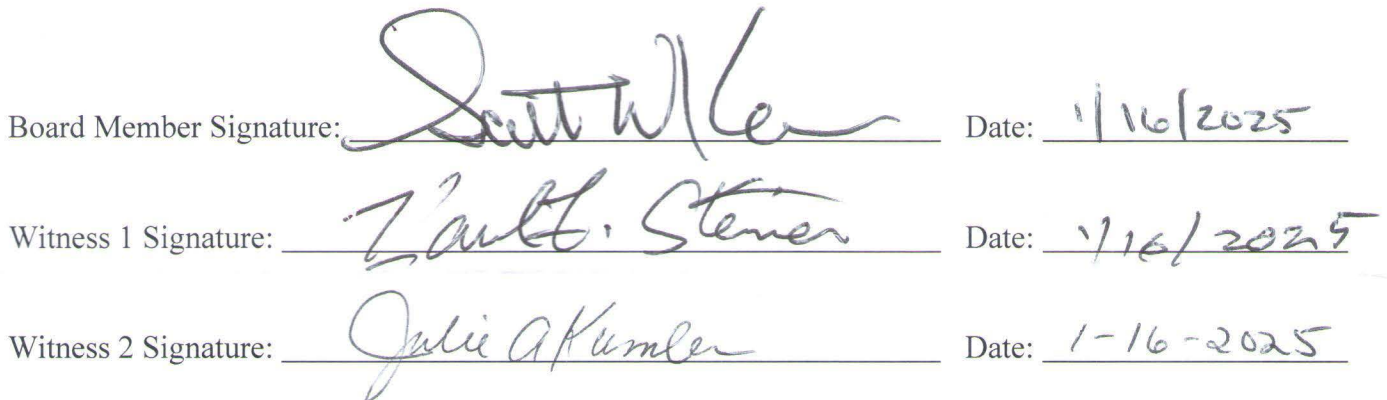 Board Member Signature: Scott W Date: 1/16/2025
Witness 1 Signature: Steiner Date: 1/16/2025
Witness 2 Signature: Julie A Kumler Date: 1-16-2025